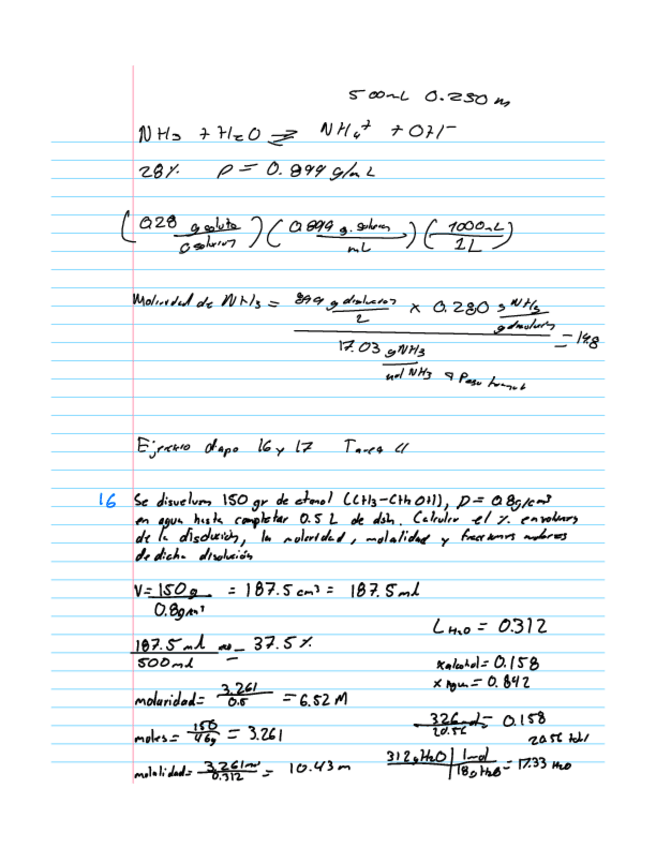 500mL 0.250 m
NH3 + H2O ⇌ NH4+ + OH-
28% ρ = 0.899 g/mL
(0.28 g soluto / g solucion) (0.899 g. solucion / mL) (1000mL / 1L)
Molaridad de NH3 = 899 g disolucion / L x 0.280 g NH3 / g disolucion
17.03 g NH3 / mol NH3 = 14.8
Ejercicio etapa 16 y 17 Tarea 4
16 Se disuelven 150 gr de etanol (CH3-CH2OH), D= 0.8g/cm³
en agua hasta completar 0.5 L de dsln. Calcular el % en volumen
de la disolución, la molaridad, molalidad y fracciones molares
de dicha disolución
V= 150g / 0.8g/cm³ = 187.5 cm³ = 187.5 ml
L H2O = 0.312
187.5 ml / 500ml = 37.5%
x alcohol = 0.158
x Agua = 0.842
molaridad= 3.261 / 0.5 = 6.52 M
3.26 mol / 20.56 = 0.158
moles= 150 / 46g = 3.261
20.56 total
molalidad= 3.261 m / 0.312 = 10.43 m
312g H2O | 1mol / 18g H2O = 17.33 H2O